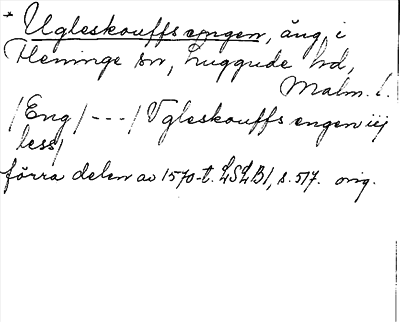 * Ugleskouffs engen, äng, i
Fleninge sn, Luggude hd,
Malm. l.
/Eng/ --- / Vgleskouffs engen iij
less/
förra delen av 1570-t. LSLB1, s. 517. orig.